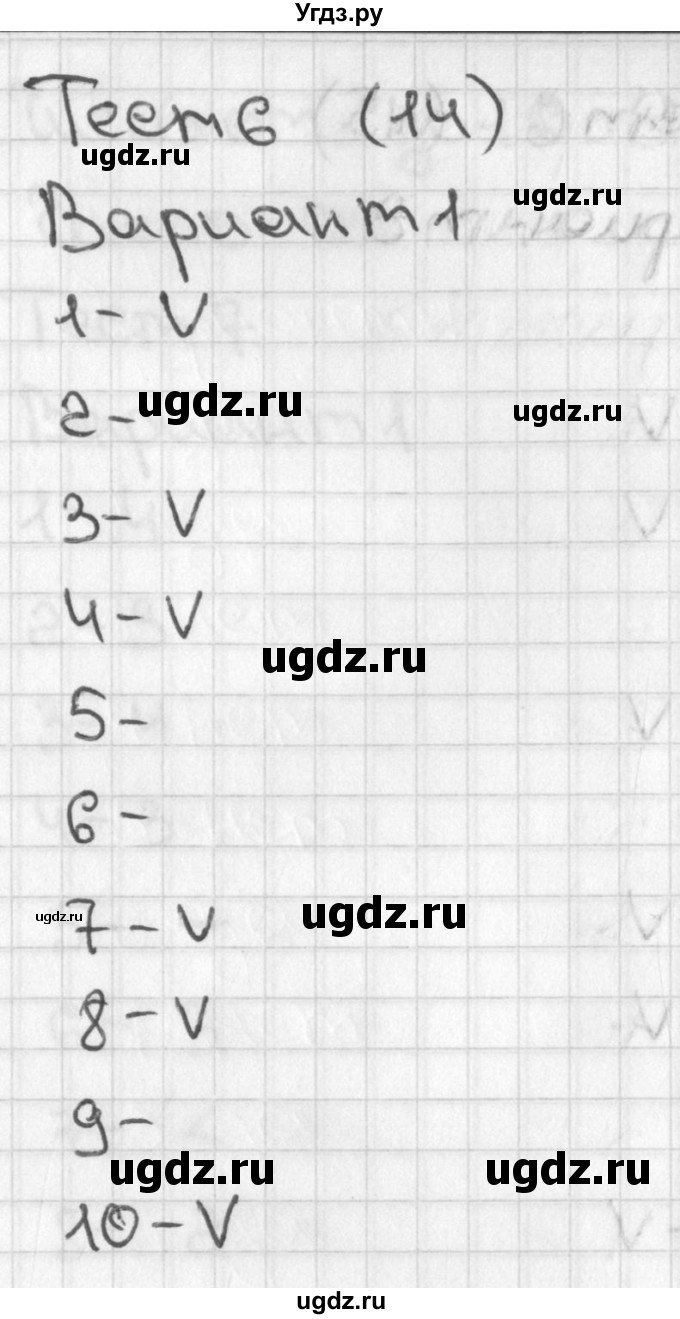 Угдз.ру
Тест 6 (14)
ugdz.ru
ugdz.ru
Вариант 1
1 - V
ugdz.ru
ugdz.ru
2 -
3 - V
4 - V
ugdz.ru
5 -
6 -
ugdz.ru
ugdz.ru
7 - V
8 - V
9 -
ugdz.ru
ugdz.ru
10 - V
ugdz.ru